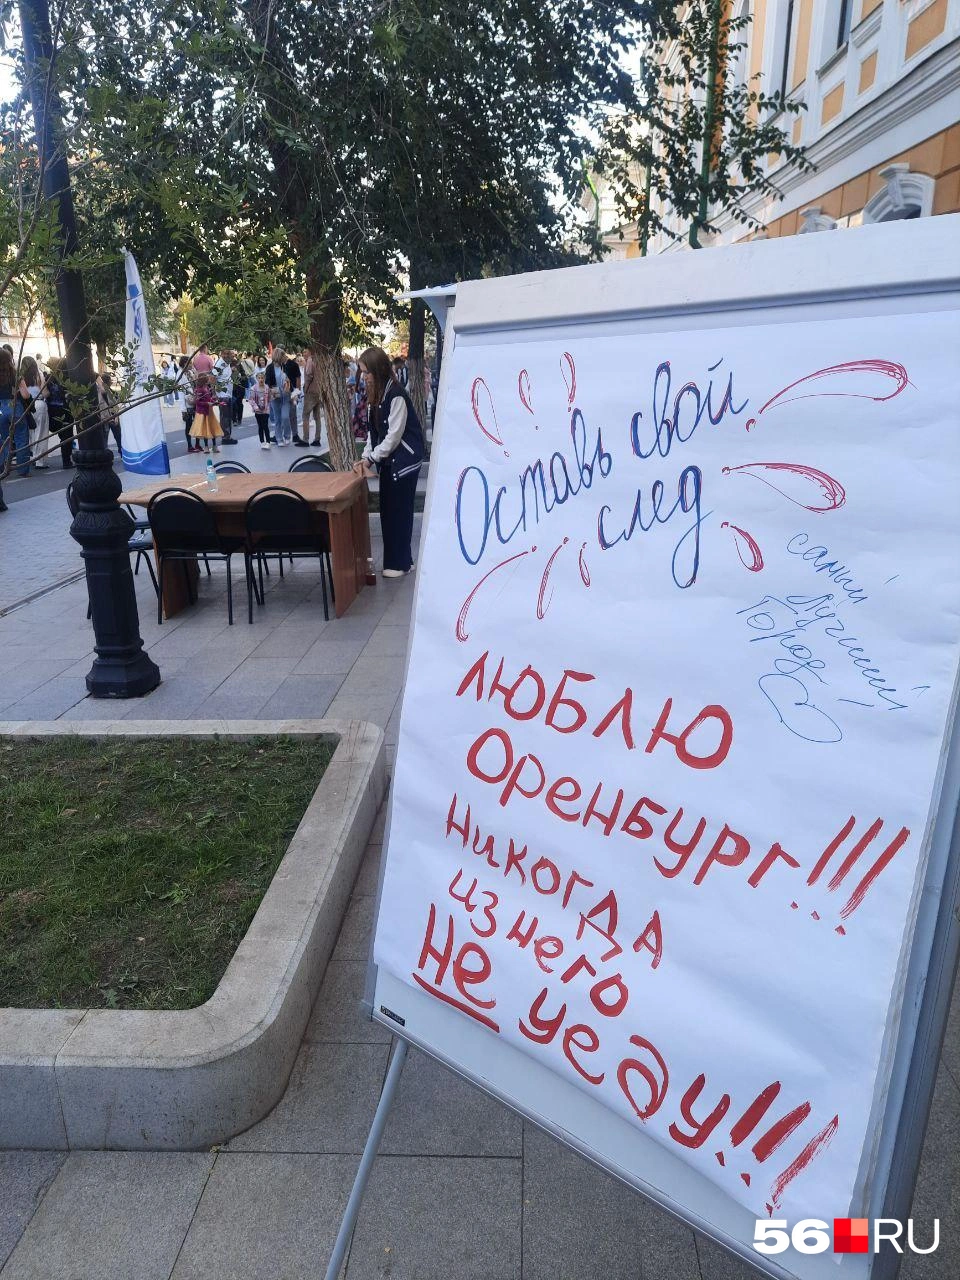 Оставь свой
след
самый
лучший
город!
ЛЮБЛЮ
ОРЕНБУРГ!!!
НИКОГДА
ИЗ НЕГО
НЕ УЕДУ!!!
56RU